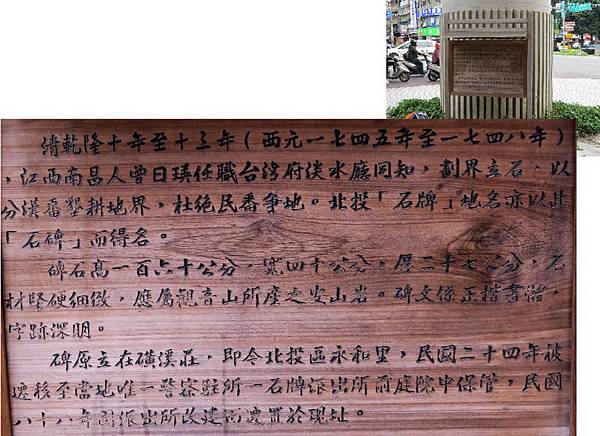 清乾隆十年至十三年（西元一七四五年至一七四八年）
，江西南昌人曾日瑛任職台灣府淡水廳同知，劃界立石，以
分漢番墾耕地界，杜絕民番爭地。北投「石牌」地名亦以此
「石碑」而得名。
碑石高一百六十公分，寬四十公分，厚二十七公分，石
材堅硬細緻，應屬觀音山所產之安山岩。碑文係正楷書體，
字跡深明。
碑原立在磺溪莊，即今北投區永和里，民國二十四年被
遷移至當地唯一警察駐所－石牌派出所前庭院中保管，民國
八十八年間派出所改建而遷置於現址。